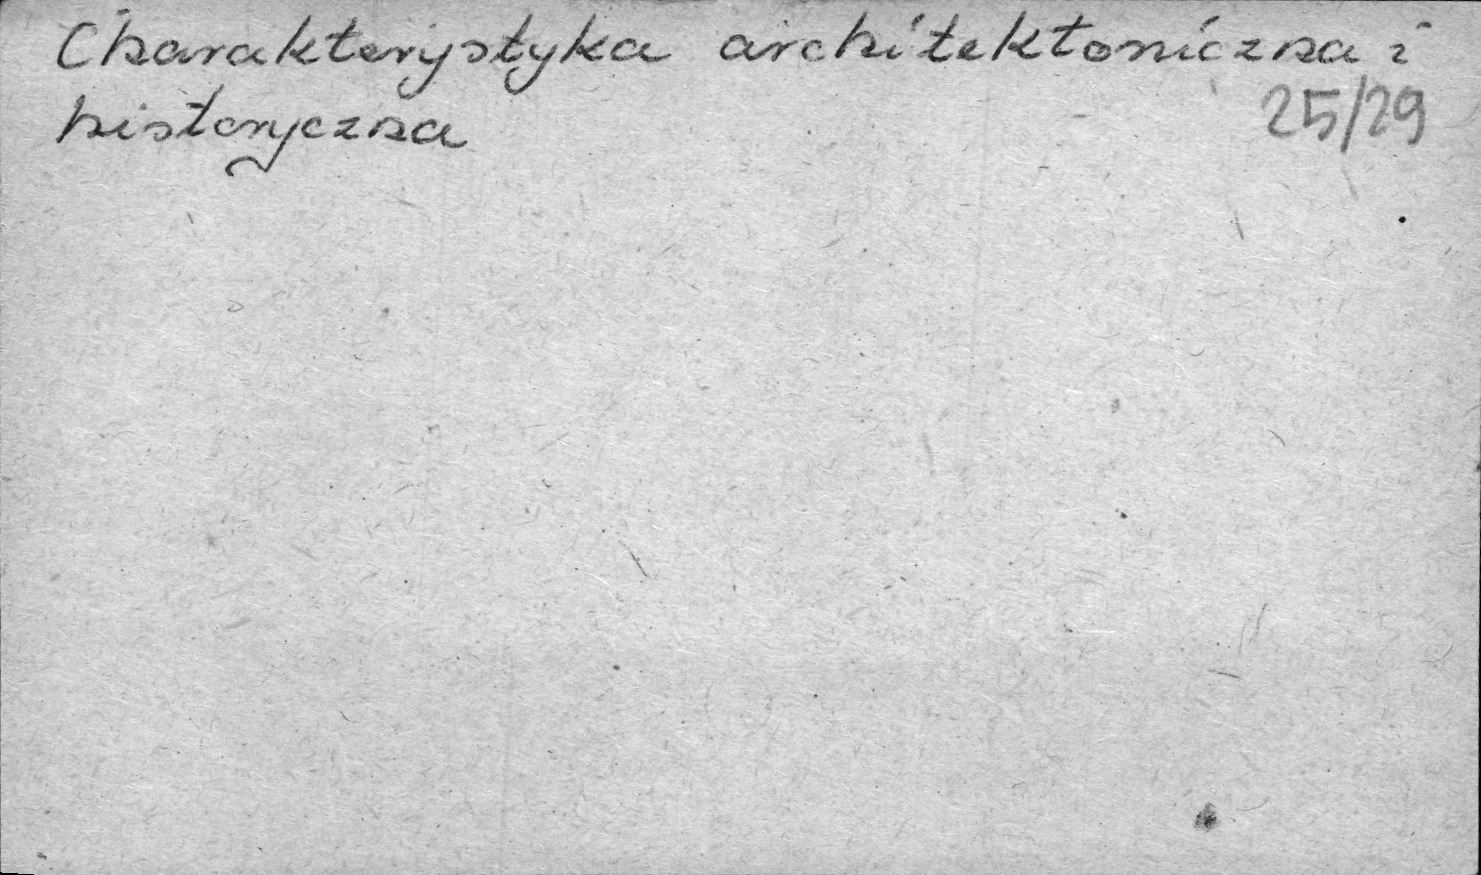 Charakterystyka architektoniczna i
historyczna
25/29